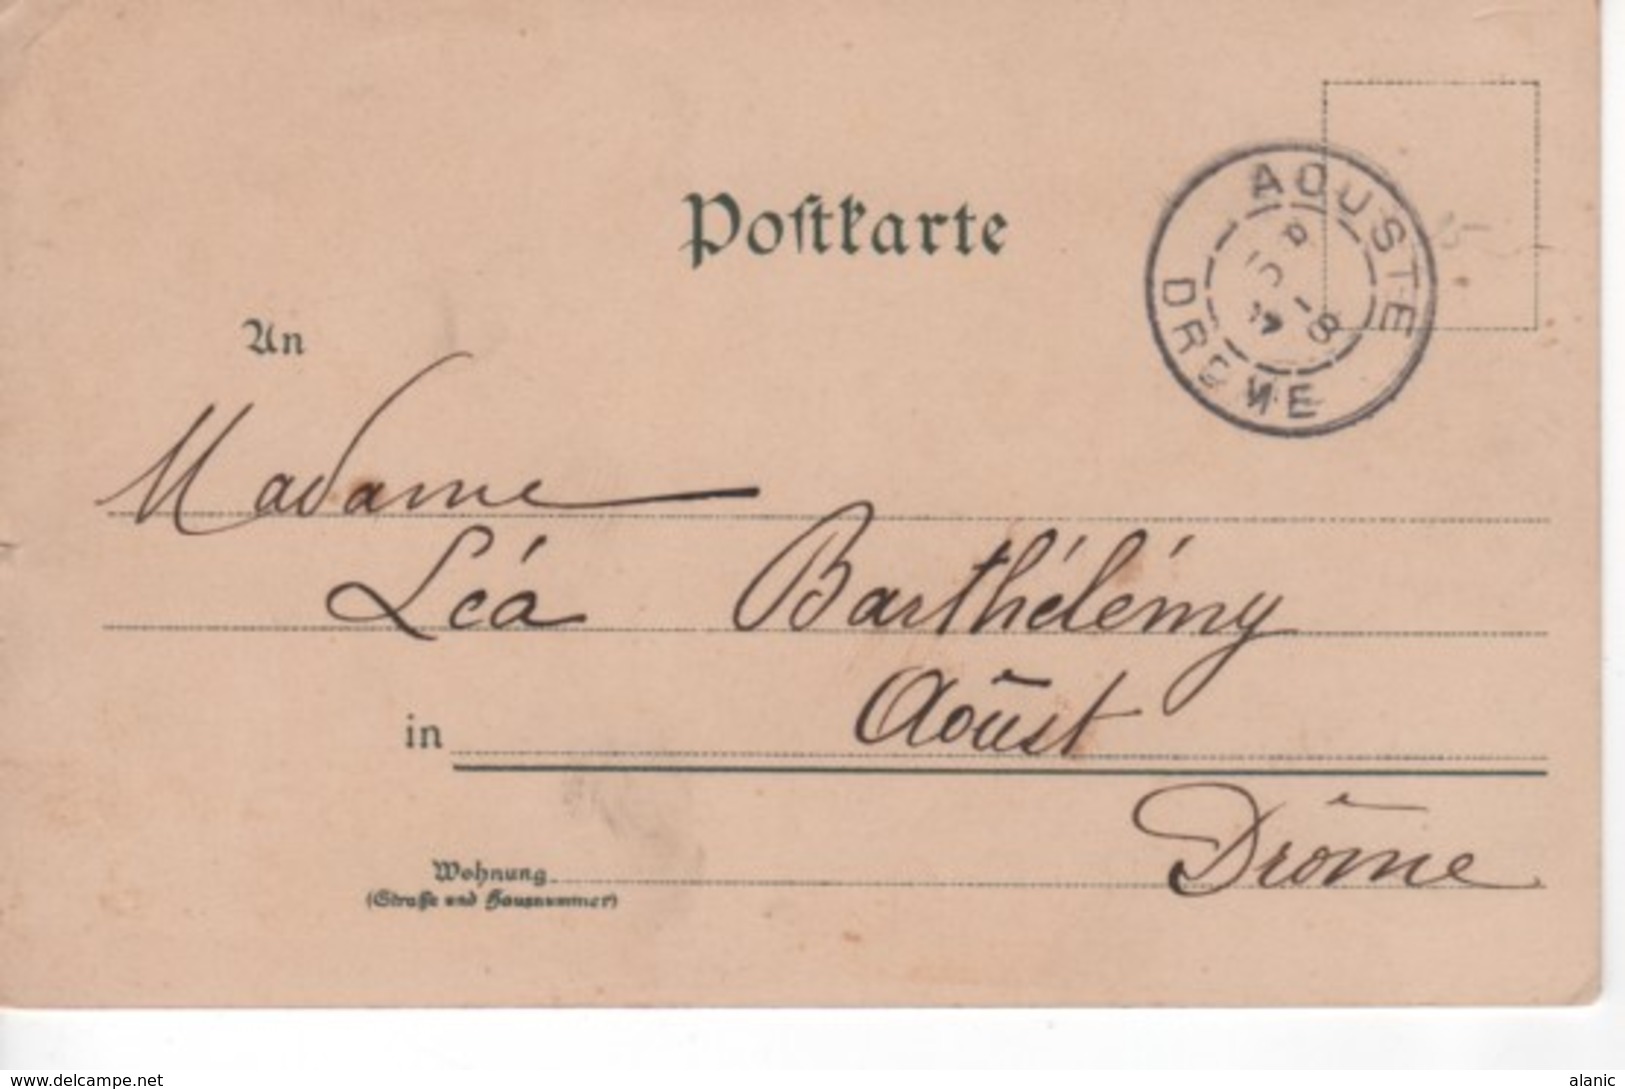 Postkarte
AOUSTE
DROME
An
Madame
Léa Barthélémy
in Aoûst
Drôme
Wohnung
(Straße und Hausnummer)
www.delcampe.net
alanic